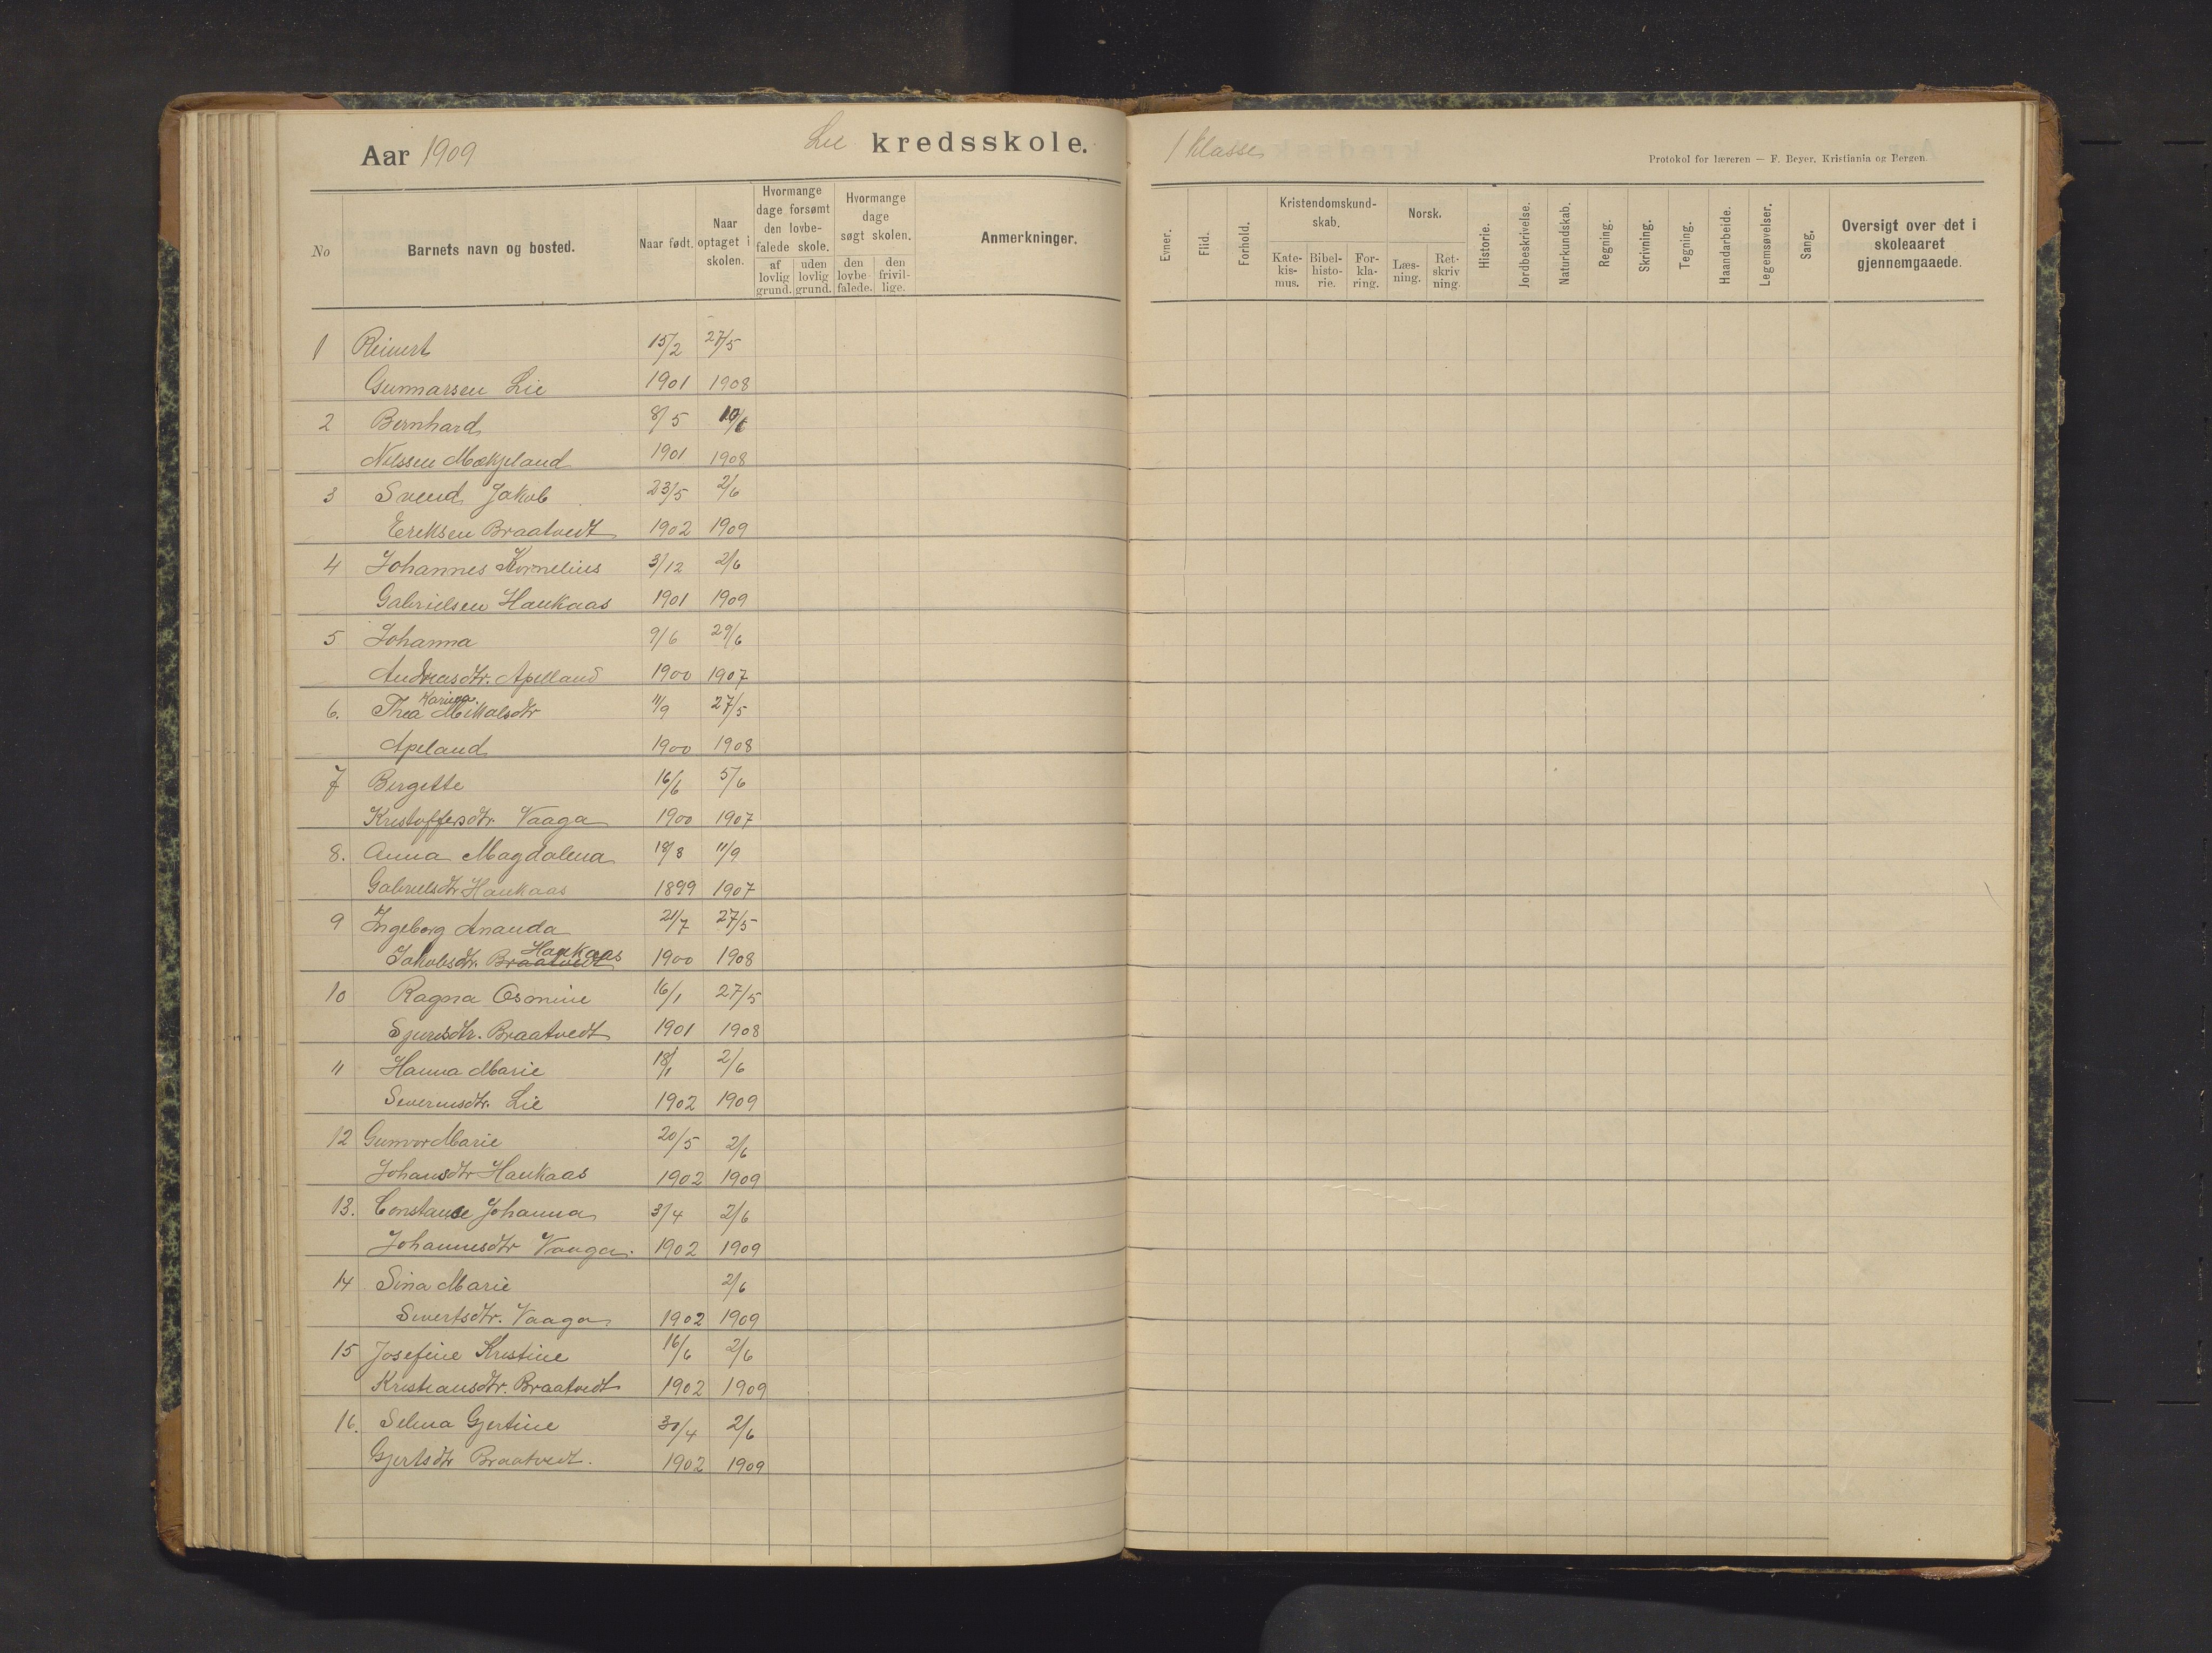 Aar 1909 Lie kredsskole.
1 Klasse
Protokol for læreren — F. Beyer, Kristiania og Bergen.
No Barnets navn og bosted. Naar født. Naar optaget i skolen. Hvormange dage forsømt den lovbefalede skole. af lovlig grund. uden lovlig grund. Hvormange dage søgt skolen. den lovbefalede. den frivillige. Anmerkninger.
Evner. Flid. Forhold. Kristendomskundskab. Katekismus. Bibelhistorie. Forklaring. Norsk. Læsning. Retskrivning. Historie. Jordbeskrivelse. Naturkundskab. Regning. Skrivning. Tegning. Haandarbeide. Legemsøvelser. Sang. Oversigt over det i skoleaaret gjennemgaaede.
1 Reinert 15/2 27/5
Gunnarsen Lie 1901 1908
2 Bernhard 8/5 10/6
Nilssen Mækjeland 1901 1908
3 Svend Jakob 23/5 2/6
Eriksen Braatvedt 1902 1909
4 Johannes Kornelius 3/12 2/6
Gabrielsen Haukaas 1901 1909
5 Johanna 9/6 29/6
Andreasdtr. Apelland 1900 1907
6. Thea Karina Mikalsdtr 11/9 27/5
Apeland 1900 1908
7 Bergitte 16/6 5/6
Kristoffersdtr. Vaaga 1900 1907
8. Anna Magdalena 18/8 11/9
Gabrielsdtr Haukaas 1899 1907
9 Ingeborg Ananda 21/7 27/5
Jakobsdtr. Braatvedt Haukaas 1900 1908
10 Ragna Osmine 16/1 27/5
Sjursdtr. Braatvedt 1901 1908
11 Hanna Marie 18/1 2/6
Severinsdtr. Lie 1902 1909
12 Gunvor Marie 20/5 2/6
Johansdtr Haukaas 1902 1909
13. Constanse Johanna 3/4 2/6
Johannesdtr Vaaga. 1902 1909
14 Sina Marie 2/6
Sivertsdtr. Vaaga 1902 1909
15 Josefine Kristine 16/6 2/6
Kristiansdtr. Braatvedt 1902 1909
16. Selma Gjertine 30/4 2/6
Gjertsdtr Braatvedt. 1902 1909